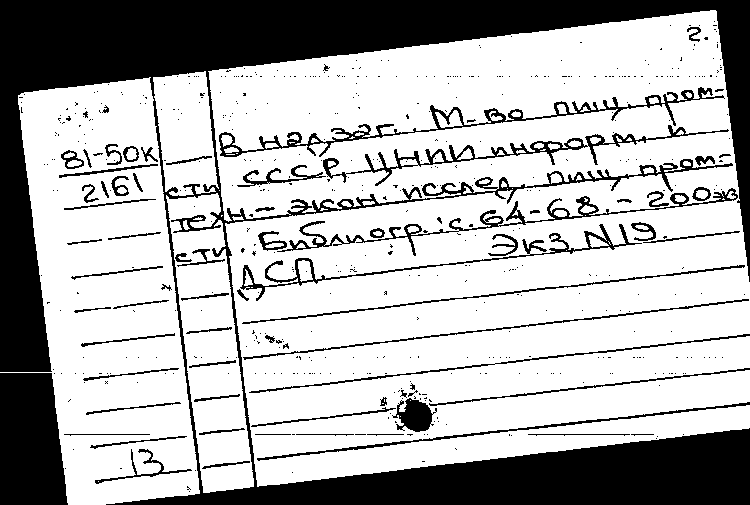 2.
В надзаг.: М-во пищ. пром-
81-50к
сти СССР, ЦНИИ информ. и
2161
техн.-экон. исслед. пищ. пром-
сти. Библиогр.: с. 64-68. - 200 экз
ДСП. Экз. N19.
13